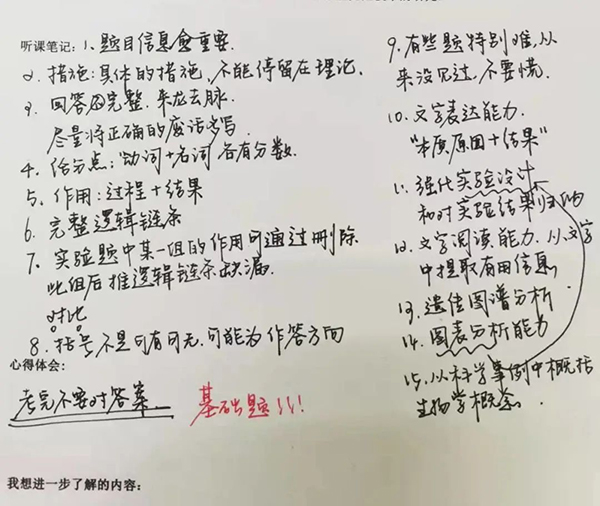 听课笔记：1、题目信息重要.
2. 措施：具体的措施，不能停留在理论、
3. 回答完整. 来龙去脉.
尽量将正确的废话多写
4. 给分点：动词+名词 各有分数.
5. 作用：过程+结果
6. 完整逻辑链条
7. 实验题中某一组的作用可通过删除
此组后推逻辑链条缺漏.
对比
8. 括号不是可有可无.可能为作答方向
心得体会：
考完不要对答案.
基础题!!!
我想进一步了解的内容：
9. 有些题特别难，从
来没见过，不要慌.
10. 文字表达能力.
“本质原因+结果”
11. 强化实验设计
和对实验结果归纳
12. 文字阅读能力.从文字
中提取有用信息.
13. 遗传图谱分析.
14. 图表分析能力
15. 从科学事例中概括
生物学概念.